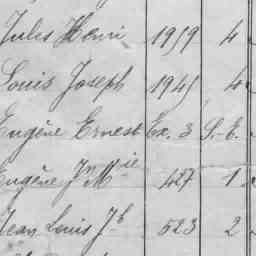 Jules Henri 1959 4
Louis Joseph 1941 4
Eugène Ernest Ex. 3 S.-E.
Eugène Jn Mie 427 1
Jean Louis Jh 523 2